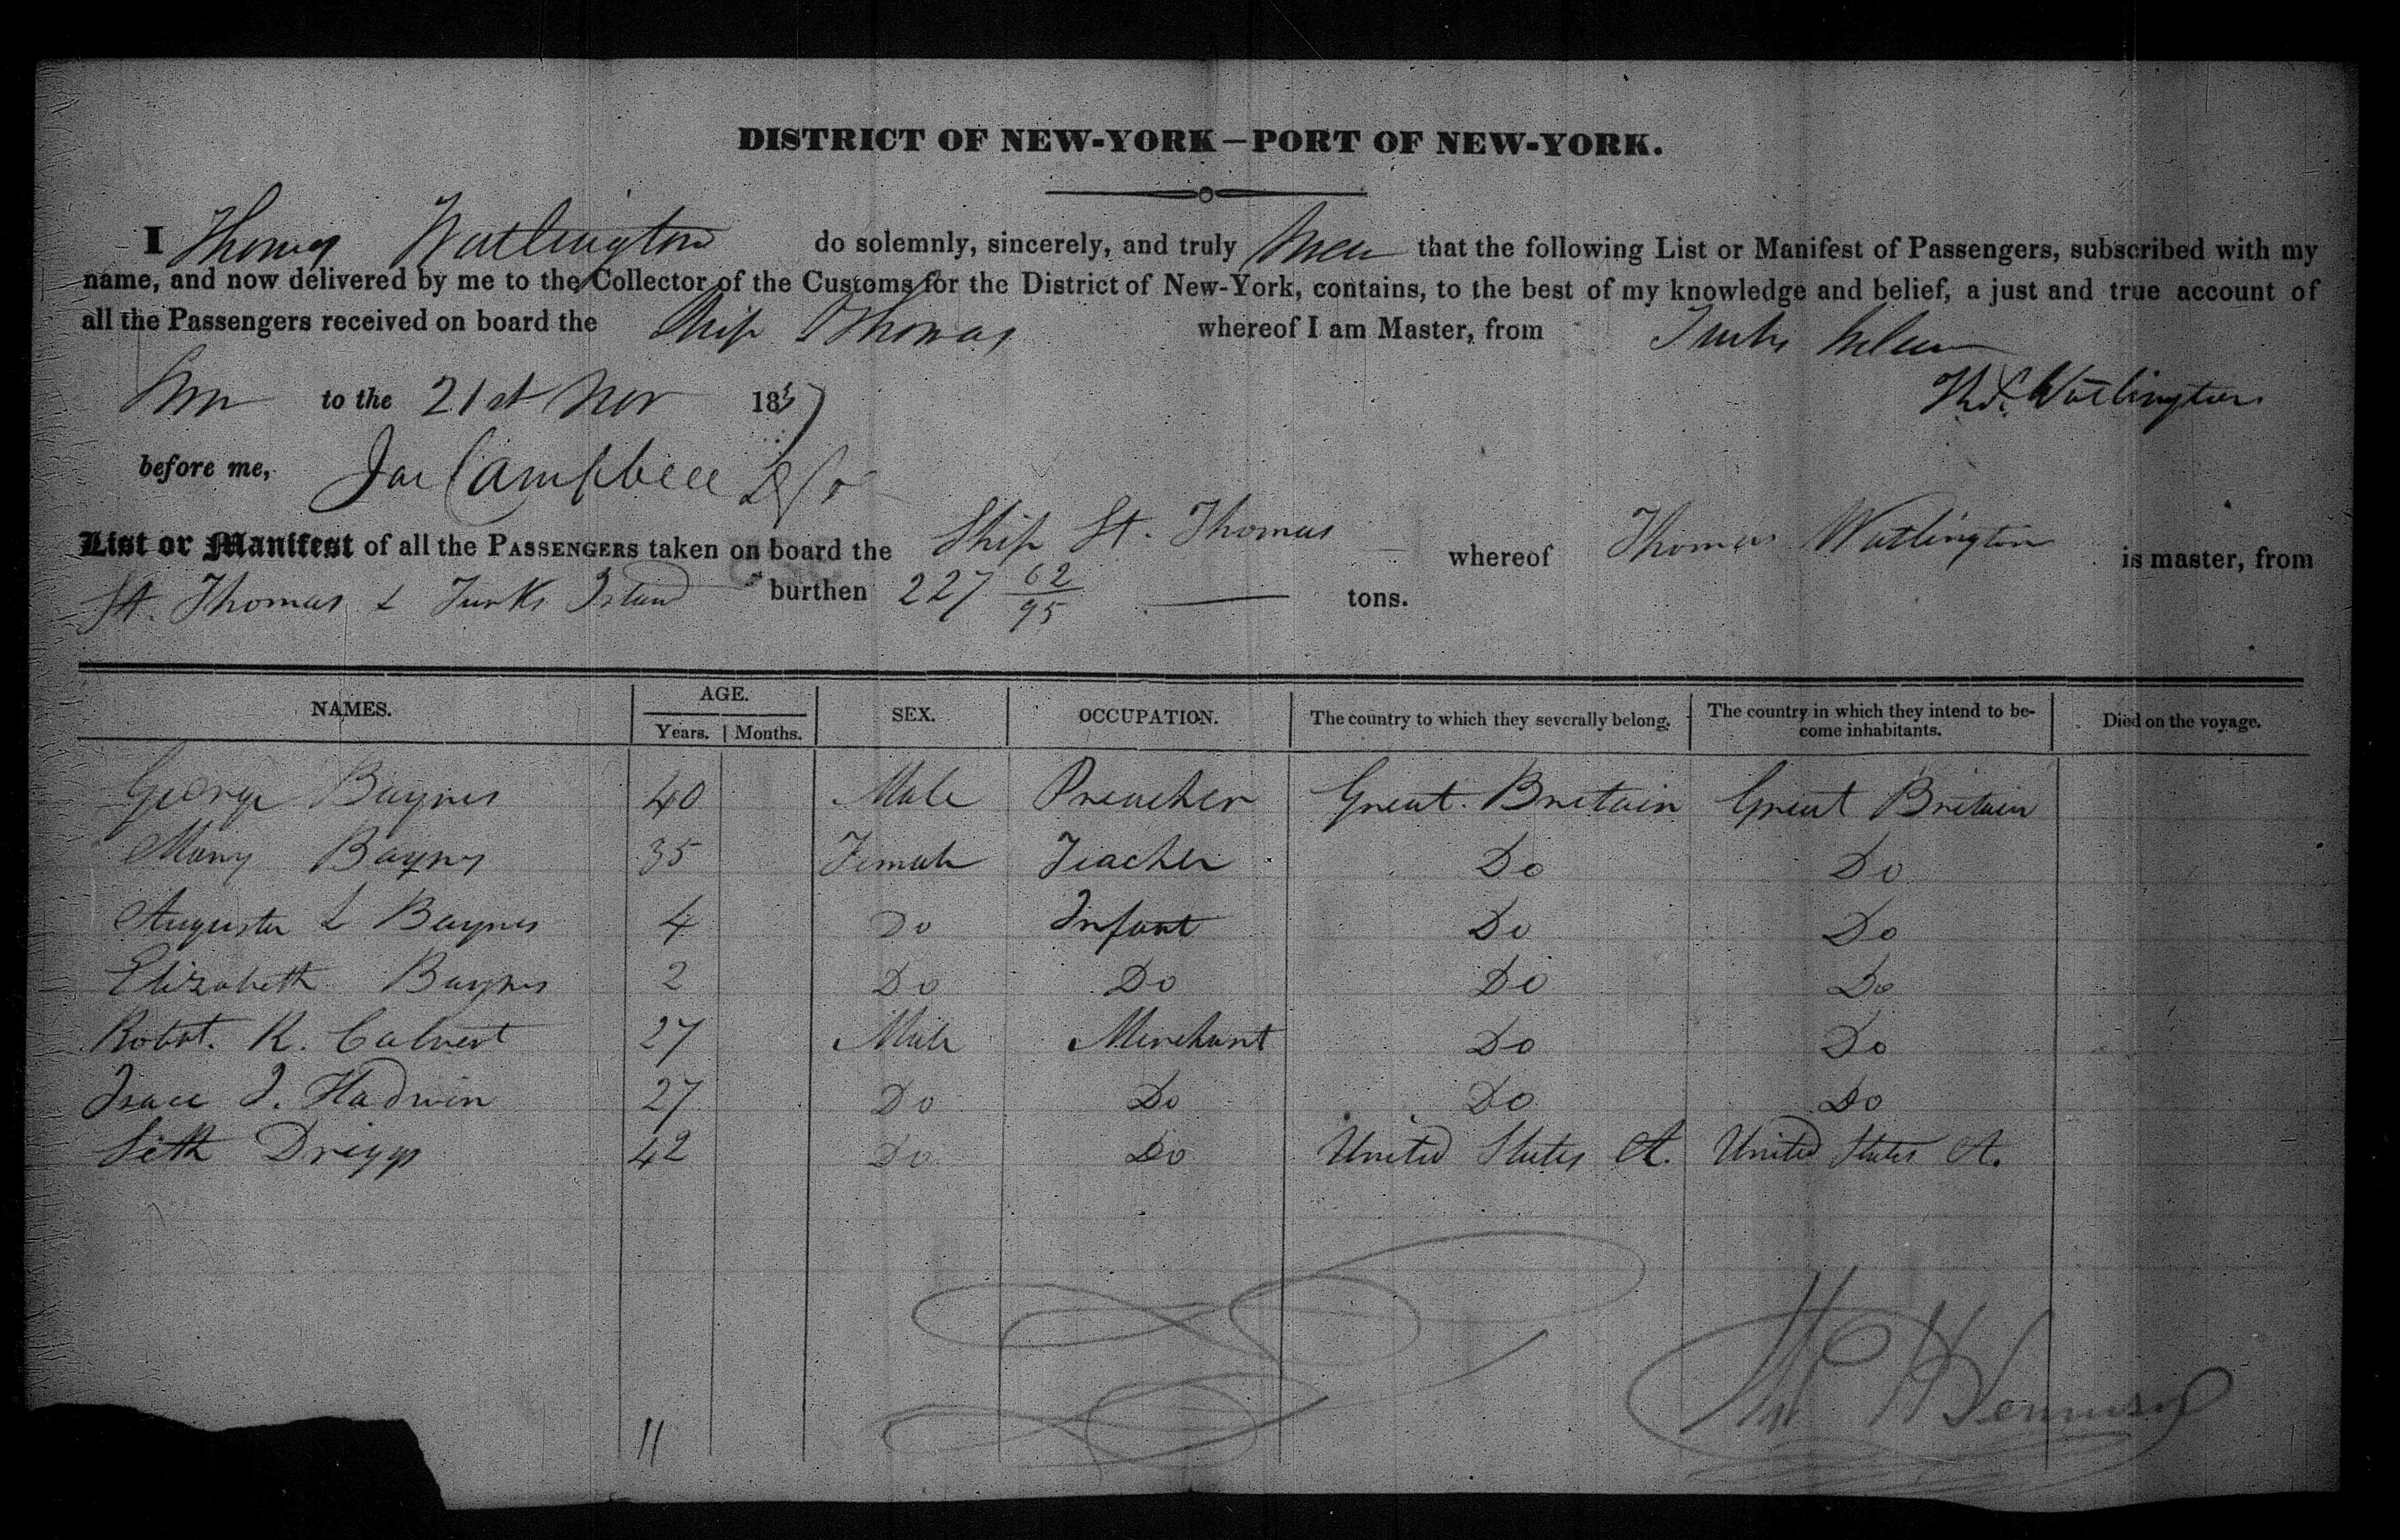 DISTRICT OF NEW-YORK—PORT OF NEW-YORK.
I Thomas Watlington do solemnly, sincerely, and truly swear that the following List or Manifest of Passengers, subscribed with my
name, and now delivered by me to the Collector of the Customs for the District of New-York, contains, to the best of my knowledge and belief, a just and true account of
all the Passengers received on board the Ship Thomas whereof I am Master, from Turks Island
to the 21st Nov 1837
Thos. Watlington
before me, Campbell
List or Manifest of all the PASSENGERS taken on board the Ship St. Thomas whereof Thomas Watlington is master, from
St. Thomas & Turks Island burthen 227 62/95 tons.
NAMES. AGE. Years. Months. SEX. OCCUPATION. The country to which they severally belong. The country in which they intend to become inhabitants. Died on the voyage.
George Baynes 40 Male Preacher Great Britain Great Britain
Mary Baynes 35 Female Teacher Do Do
Augusta L Baynes 4 Do Infant Do Do
Elizabeth Baynes 2 Do Do Do Do
Robt. R. Calvert 27 Male Merchant Do Do
Isaac J. Hadwin 27 Do Do Do Do
Seth Driggs 42 Do Do United States A. United States A.
11